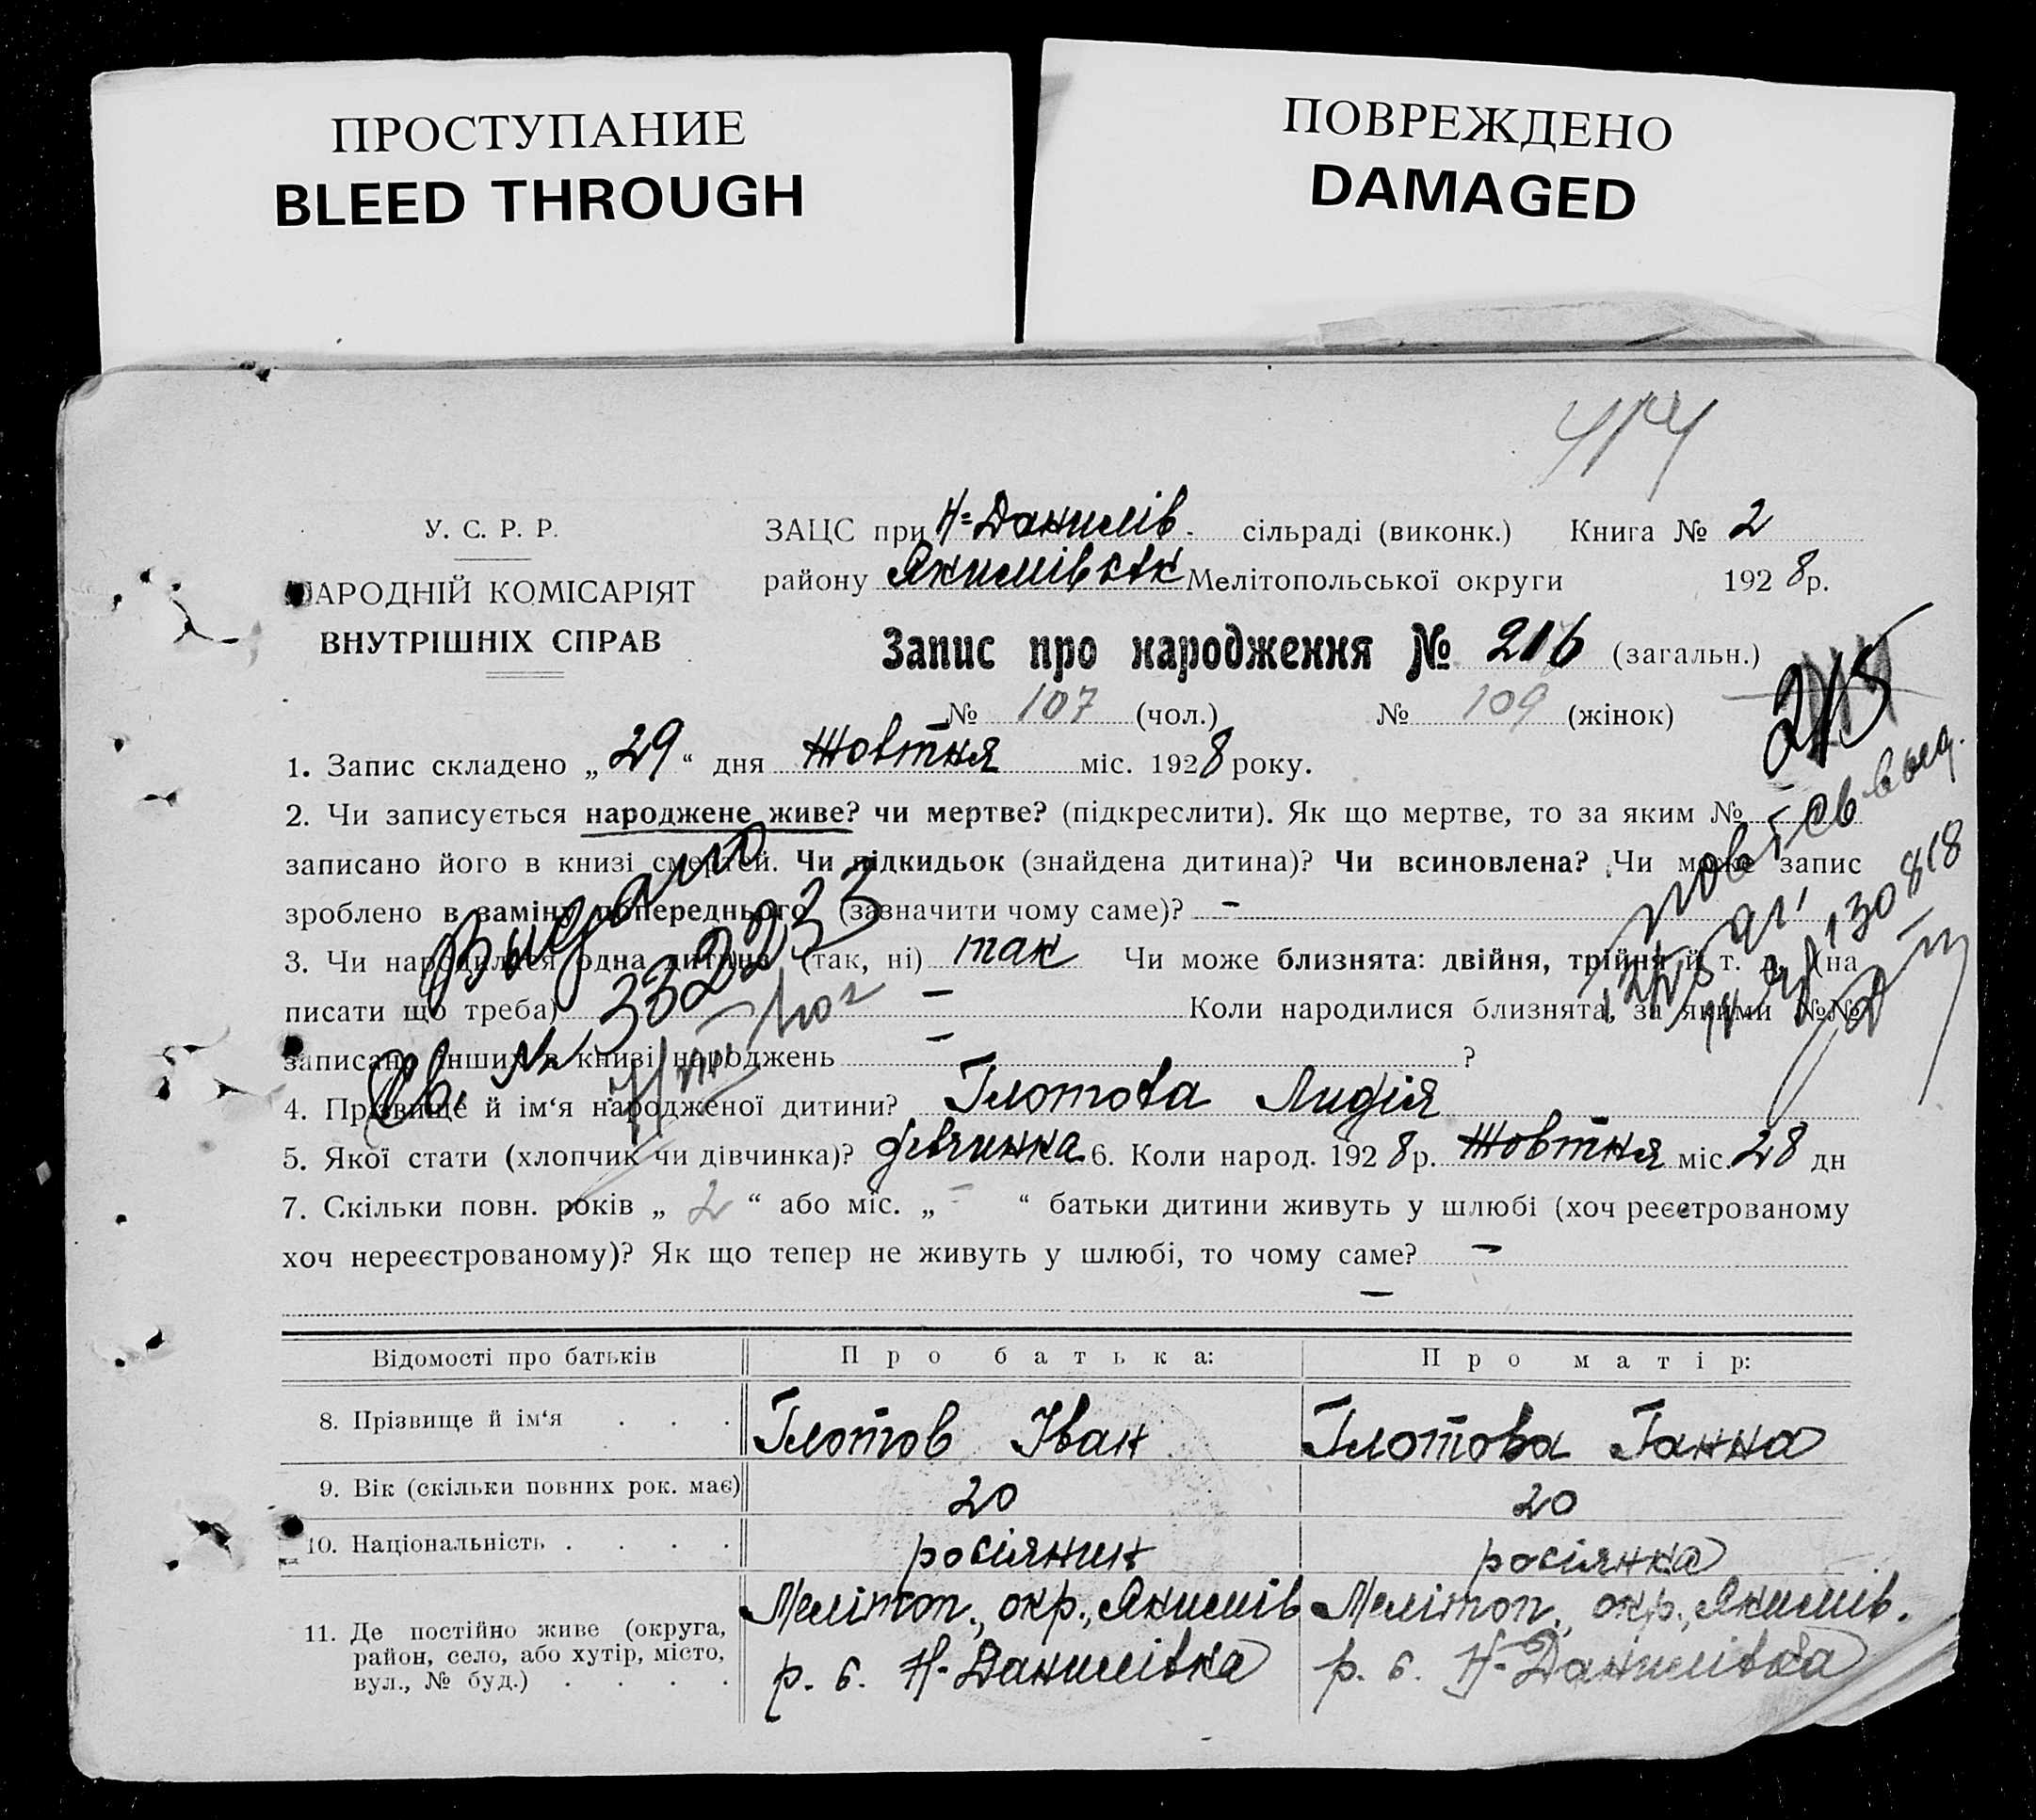 ПРОСТУПАНИЕ
BLEED THROUGH
ПОВРЕЖДЕНО
DAMAGED
У. С. Р. Р.
НАРОДНІЙ КОМІСАРІЯТ
ВНУТРІШНІХ СПРАВ
ЗАЦС при Н-Данилів. сільраді (виконк.) Книга № 2
району Якимівськ Мелітопольської округи 1928 р.
Запис про народження № 216 (загальн.)
215
№ 107 (чол.) № 109 (жінок)
1. Запис складено „ 29 “ дня Жовтня міс. 1928 року.
2. Чи записується народжене живе? чи мертве? (підкреслити). Як що мертве, то за яким №
записано його в книзі смертей. Чи підкидьок (знайдена дитина)? Чи всиновлена? Чи може запис
зроблено в заміну попереднього (зазначити чому саме)? -
3. Чи народилася одна дитина (так, ні) так Чи може близнята: двійня, трійня й т. д. (на
писати що треба) — Коли народилися близнята, за якими №№
записано інших в книзі народжень — ?
Выдано
Св. № 332233
4. Прізвище й ім‘я народженої дитини? Глотова Лидія
5. Якої стати (хлопчик чи дівчинка)? дівчинка 6. Коли народ. 1928 р. Жовтня міс. 28 дн
7. Скільки повн. років „ 2 “ або міс. „ - “ батьки дитини живуть у шлюбі (хоч реєстрованому
хоч нереєстрованому)? Як що тепер не живуть у шлюбі, то чому саме? —
—
Відомості про батьків Про батька: Про матір:
8. Прізвище й ім‘я . . . Глотов Іван Глотова Ганна
9. Вік (скільки повних рок. має) 20 20
10. Національність . . . . росіянин росіянка
11. Де постійно живе (округа, район, село, або хутір, місто, вул., № буд.) . . . .
Меліточ. окр., Якимів р. с. Н-Данилівка
Мелітоп. окр., Якимів. р. с. Н-Данилівка